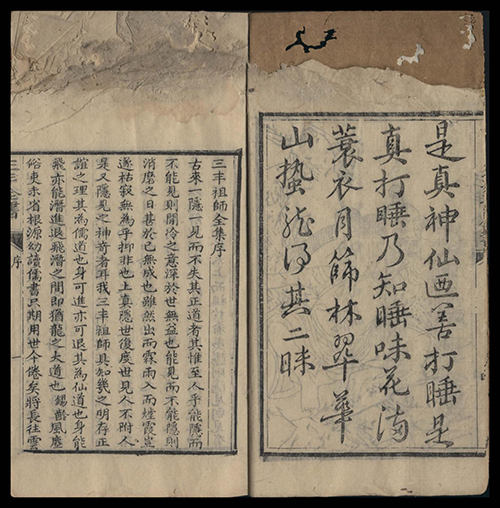 是真神仙迺善打睡是
真打睡乃知睡味花滿
蓑衣月篩林翠華
山蟄龍得其二昧
三丰祖師全集序
古來一隱一見而不失其正道者其惟至人乎能隱而
不能見則閒冷之意深於世無益也能見而不能隱則
消磨之日甚於己無成也雖然出而霖雨入而煙霞豈
遂枯寂無為乎抑非也上真隱世後度世見人不附人
是又隱見之神奇者耳我三丰祖師具知幾之明存正
誼之理其為儒道也身可進亦可退其為仙道也身能
飛亦能潛進退飛潛之間即猶龍之大道也錫齡風塵
俗吏未省根源幼讀儒書只期用世今倦矣將長往雲
序